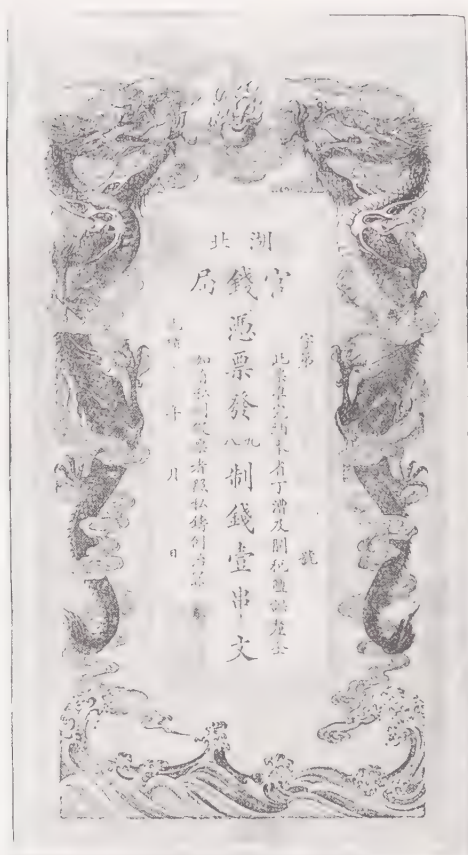 湖北
官錢局
字第 號
此票準完納本省丁漕及關稅鹽課厘金
憑票發九八制錢壹串文
如有私刻假票者照私鑄例治罪
光緒 年 月 日